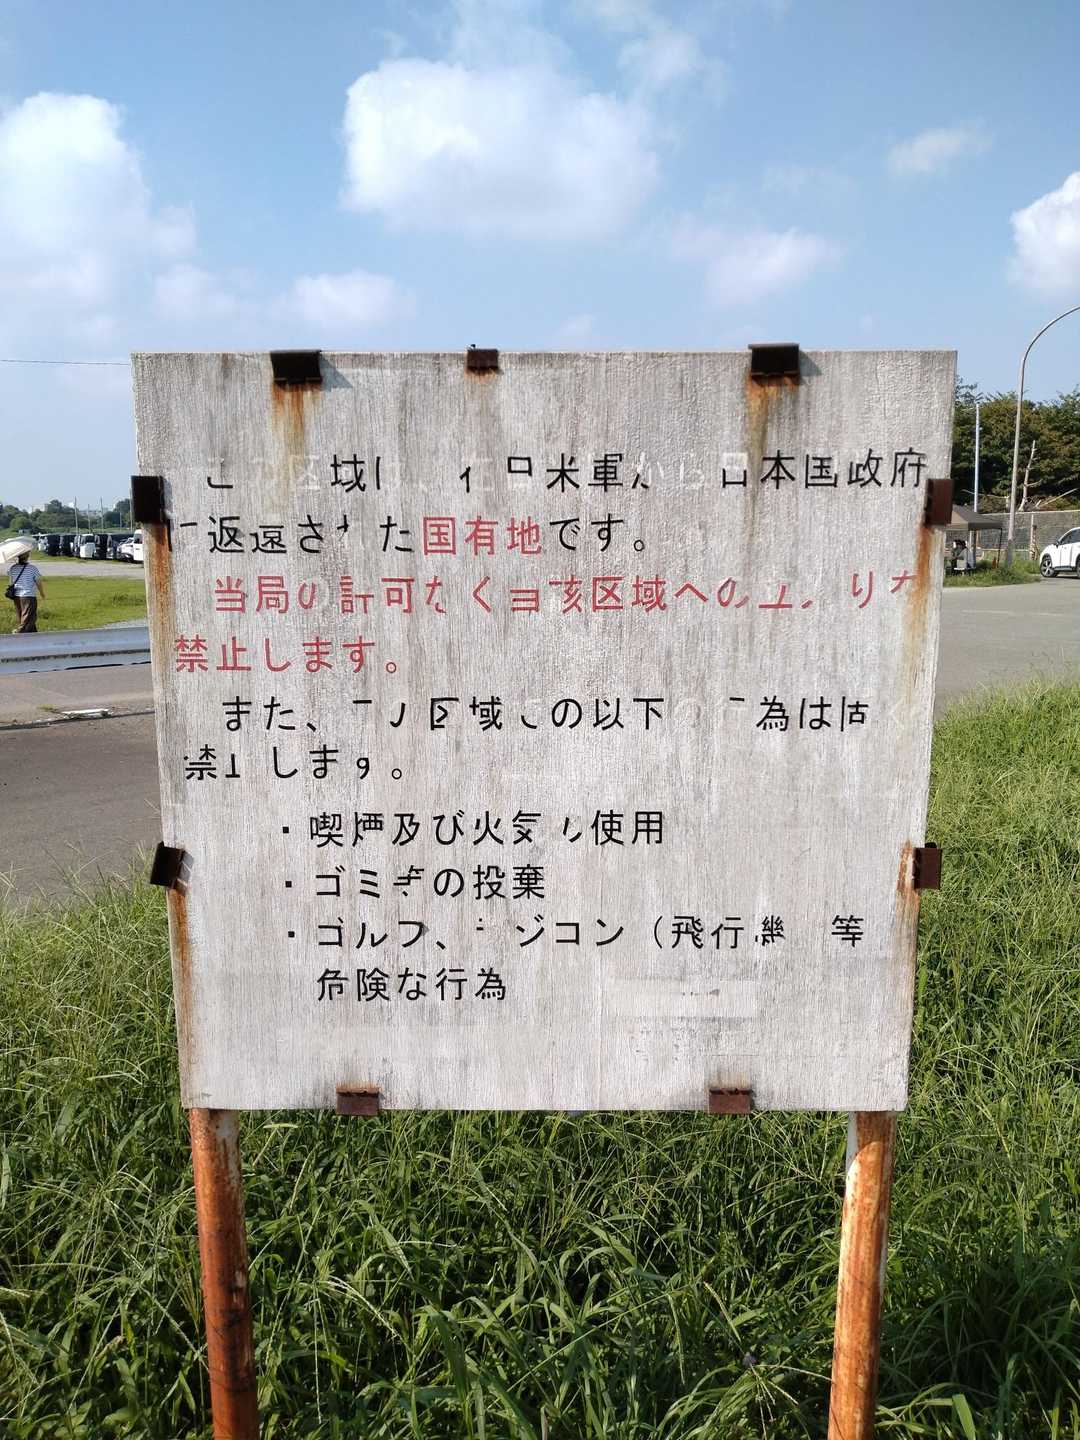 この区域は、在日米軍から日本国政府
に返還された国有地です。
当局の許可なく当該区域への立入りを
禁止します。
また、この区域での以下の行為は固く
禁止します。
・喫煙及び火気の使用
・ゴミ等の投棄
・ゴルフ、ラジコン（飛行機）等
危険な行為